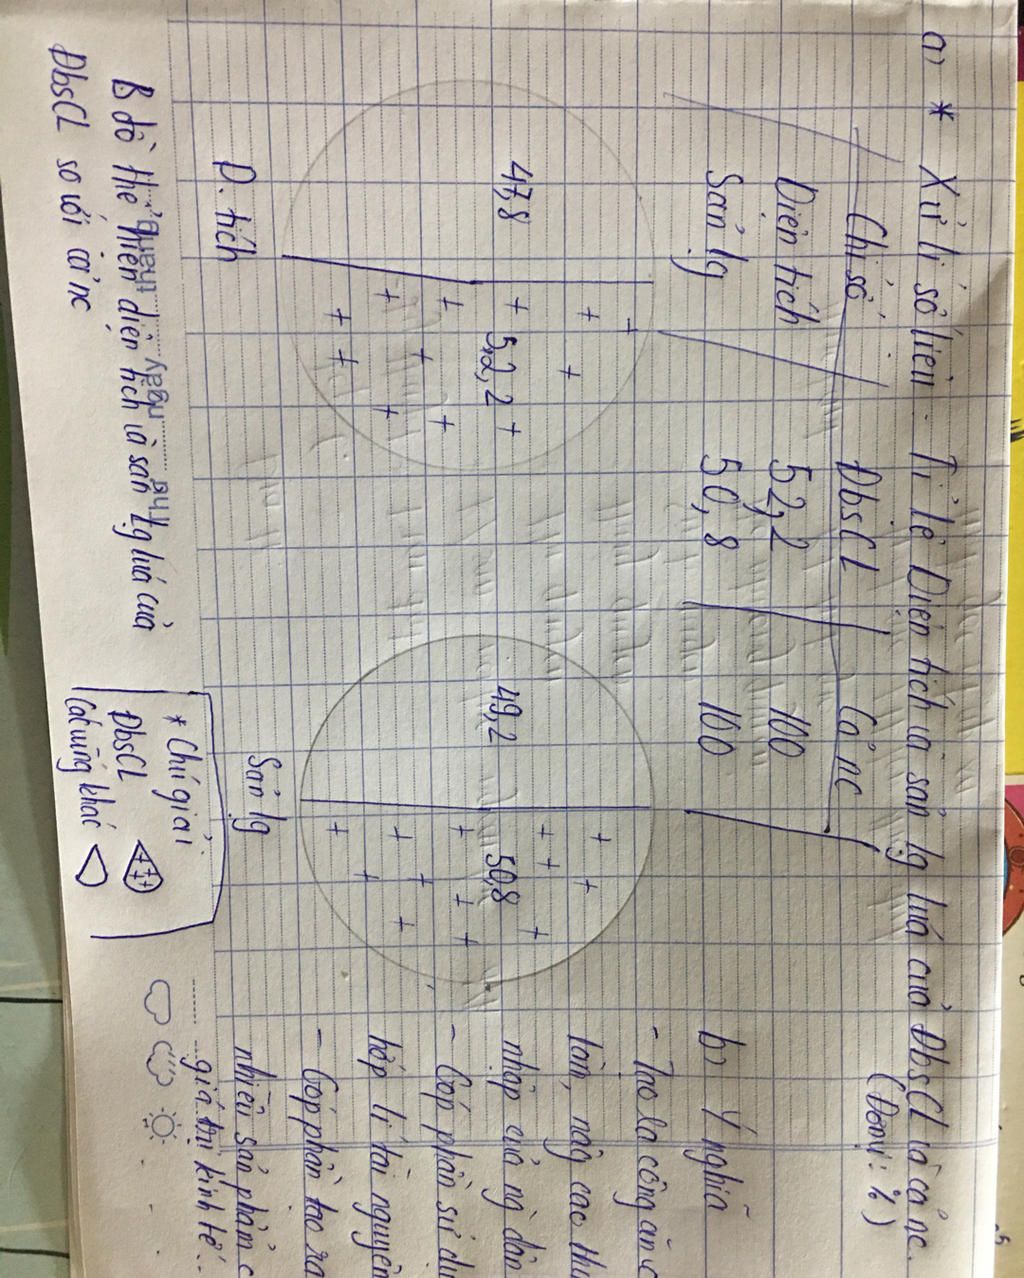 a) * Xử lí số liệu - Tỉ lệ Diện tích và sản lg lúa của ĐbsCL và cả nc.
(Đơnvị: %)
Chỉ số ĐbsCL Cả nc
Diện tích 52,2 100
Sản lg 50,8 100
47,8 52,2
49,2 50,8
D. tích
Sản lg
B đồ thể hiện diện tích và sản lg lúa của
ĐbsCL so với cả nc
* Chú giải
ĐbsCL
Các vùng khác
tháng ngày thứ
b) Ý nghĩa
- Tạo la công ăn
nâng cao thu
nhập của ng dân
- Góp phần sử dụ
hợp lí tài nguyên
- Góp phần tạo ra
nhiều sản phẩm c
giá trị kinh tế..